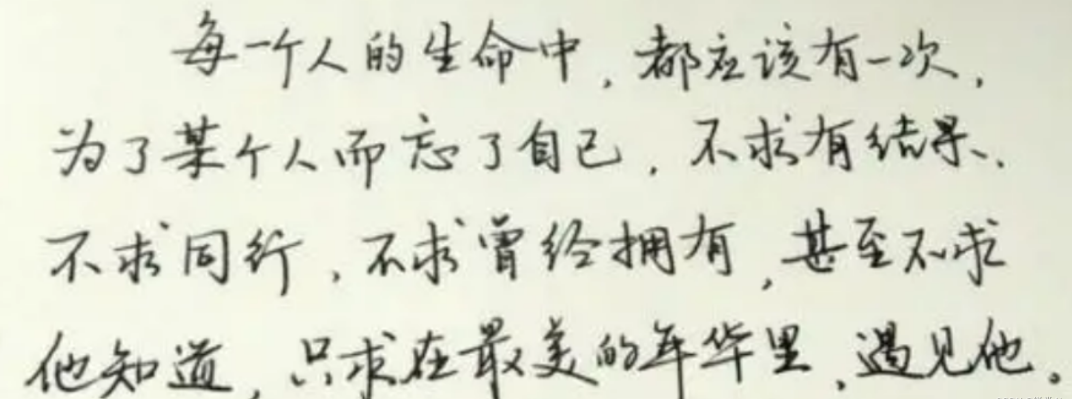 每一个人的生命中,都应该有一次,
为了某个人而忘了自己,不求有结果、
不求同行,不求曾经拥有,甚至不求
他知道,只求在最美的年华里,遇见他。